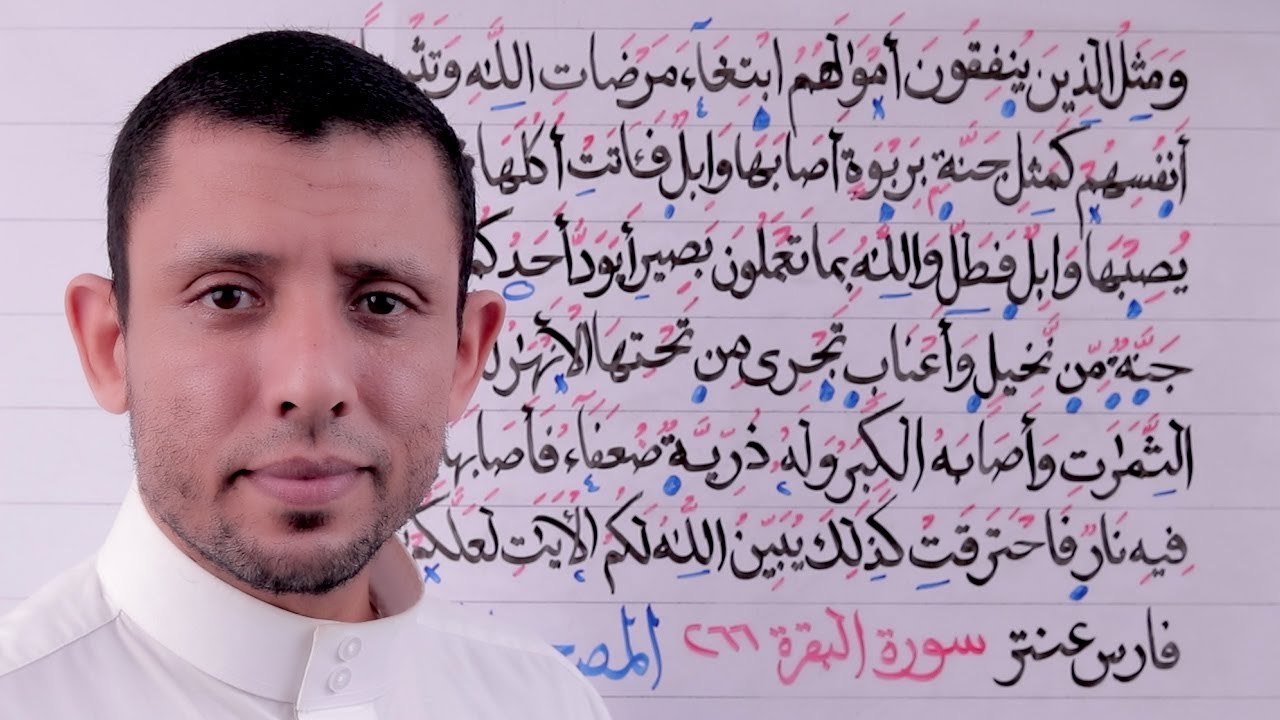 وَمَثَلُ الَّذِينَ يُنفِقُونَ أَمْوَالَهُمُ ابْتِغَآءَ مَرْضَاتِ اللَّهِ
أَنفُسِهِمْ كَمَثَلِ جَنَّةٍ بِرَبْوَةٍ أَصَابَهَا وَابِلٌ فَـَٔاتَتْ أُكُلَهَا
يُصِبْهَا وَابِلٌ فَطَلٌّ وَاللَّهُ بِمَا تَعْمَلُونَ بَصِيرٌ أَيَوَدُّ أَحَدُكُمْ
جَنَّةٌ مِّن نَّخِيلٍ وَأَعْنَابٍ تَجْرِى مِن تَحْتِهَا الْأَنْهَٰرُ
الثَّمَرَٰتِ وَأَصَابَهُ الْكِبَرُ وَلَهُ ذُرِّيَّةٌ ضُعَفَآءُ فَأَصَابَهَا
فِيهِ نَارٌ فَاحْتَرَقَتْ كَذَٰلِكَ يُبَيِّنُ اللَّهُ لَكُمُ الْـَٔايَٰتِ لَعَلَّكُمْ
فارس عنتر سورة البقرة ٢٦٦